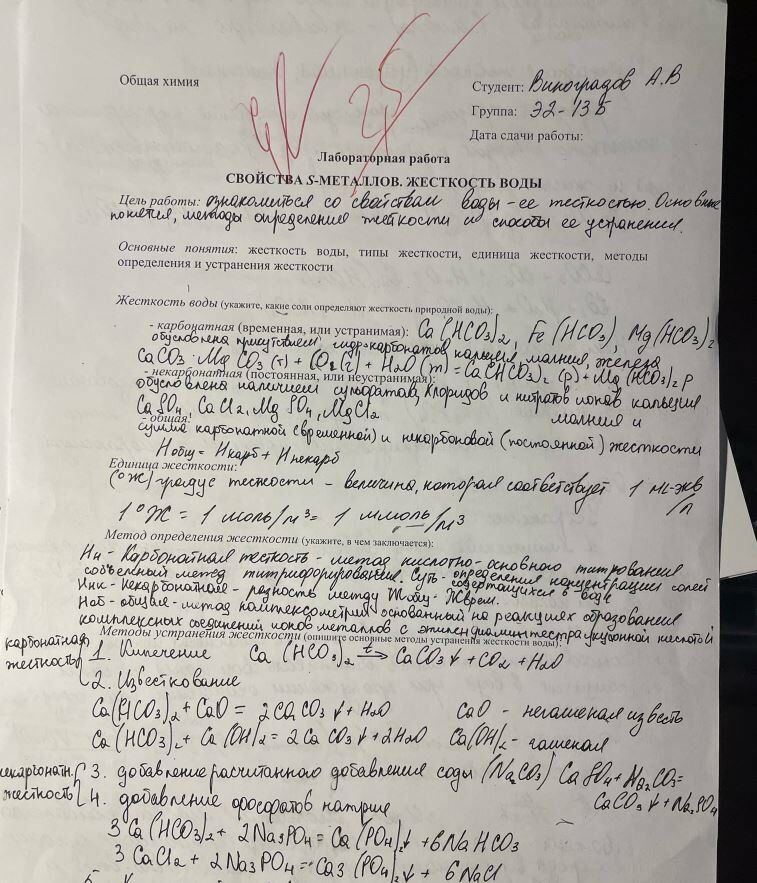 Общая химия
Студент: Виноградов А.В
Группа: Э2-13Б
Дата сдачи работы:
25
Лабораторная работа
СВОЙСТВА S-МЕТАЛЛОВ. ЖЕСТКОСТЬ ВОДЫ
Цель работы: ознакомиться со свойствам воды - ее жесткостью. Основные
понятия, методы определения жесткости и способы ее устранения.
Основные понятия: жесткость воды, типы жесткости, единица жесткости, методы
определения и устранения жесткости
Жесткость воды (укажите, какие соли определяют жесткость природной воды):
- карбонатная (временная, или устранимая): Ca(HCO3)2, Fe(HCO3), Mg(HCO3)2
обусловлена присутствием гидрокарбонатов кальция, магния, железа
CaCO3·MgCO3(т) + CO2(г) + H2O(т) = Ca(HCO3)2 (р) + Mg(HCO3)2 р
- некарбонатная (постоянная, или неустранимая):
обусловлена наличием сульфатов, хлоридов и нитратов ионов кальция
CaSO4, CaCl2, MgSO4, MgCl2 магния и
- общая:
сумма карбонатной (временной) и некарбоновой (постоянной) жесткости
Hобщ = Hкарб + Hнекарб
Единица жесткости:
(°Ж) градус жесткости - величина, которая соответствует 1 мг-экв/л
1°Ж = 1 моль/м³ = 1 ммоль/м³
Метод определения жесткости (укажите, в чем заключается):
Hк - Карбонатная жесткость - метод кислотно-основного титрования
метод. Суть - определения концентрации солей
содержащихся в воде
Hнк - некарбонатная - разность между Жобщ - Жврем.
Hоб - общая - метод комплексометрии основанный на реакциях образования
комплексных соединений ионов металлов с кислотой
Методы устранения жесткости (опишите основные методы устранения жесткости воды):
карбонатная
жесткость
1. Кипячение Ca(HCO3)2 t→ CaCO3↓ + CO2 + H2O
2. Известкование
Ca(HCO3)2 + CaO = 2CaCO3↓ + H2O CaO - негашеная известь
Ca(HCO3)2 + Ca(OH)2 = 2CaCO3↓ + 2H2O Ca(OH)2 - гашеная
жесткость
3. добавление расчитанного добавления соды (Na2CO3) CaSO4 + Na2CO3 =
CaCO3↓ + Na2SO4
4. добавление фосфатов натрия
3Ca(HCO3)2 + 2Na3PO4 = Ca(PO4)2↓ + 6NaHCO3
3CaCl2 + 2Na3PO4 = Ca3(PO4)2↓ + 6NaCl